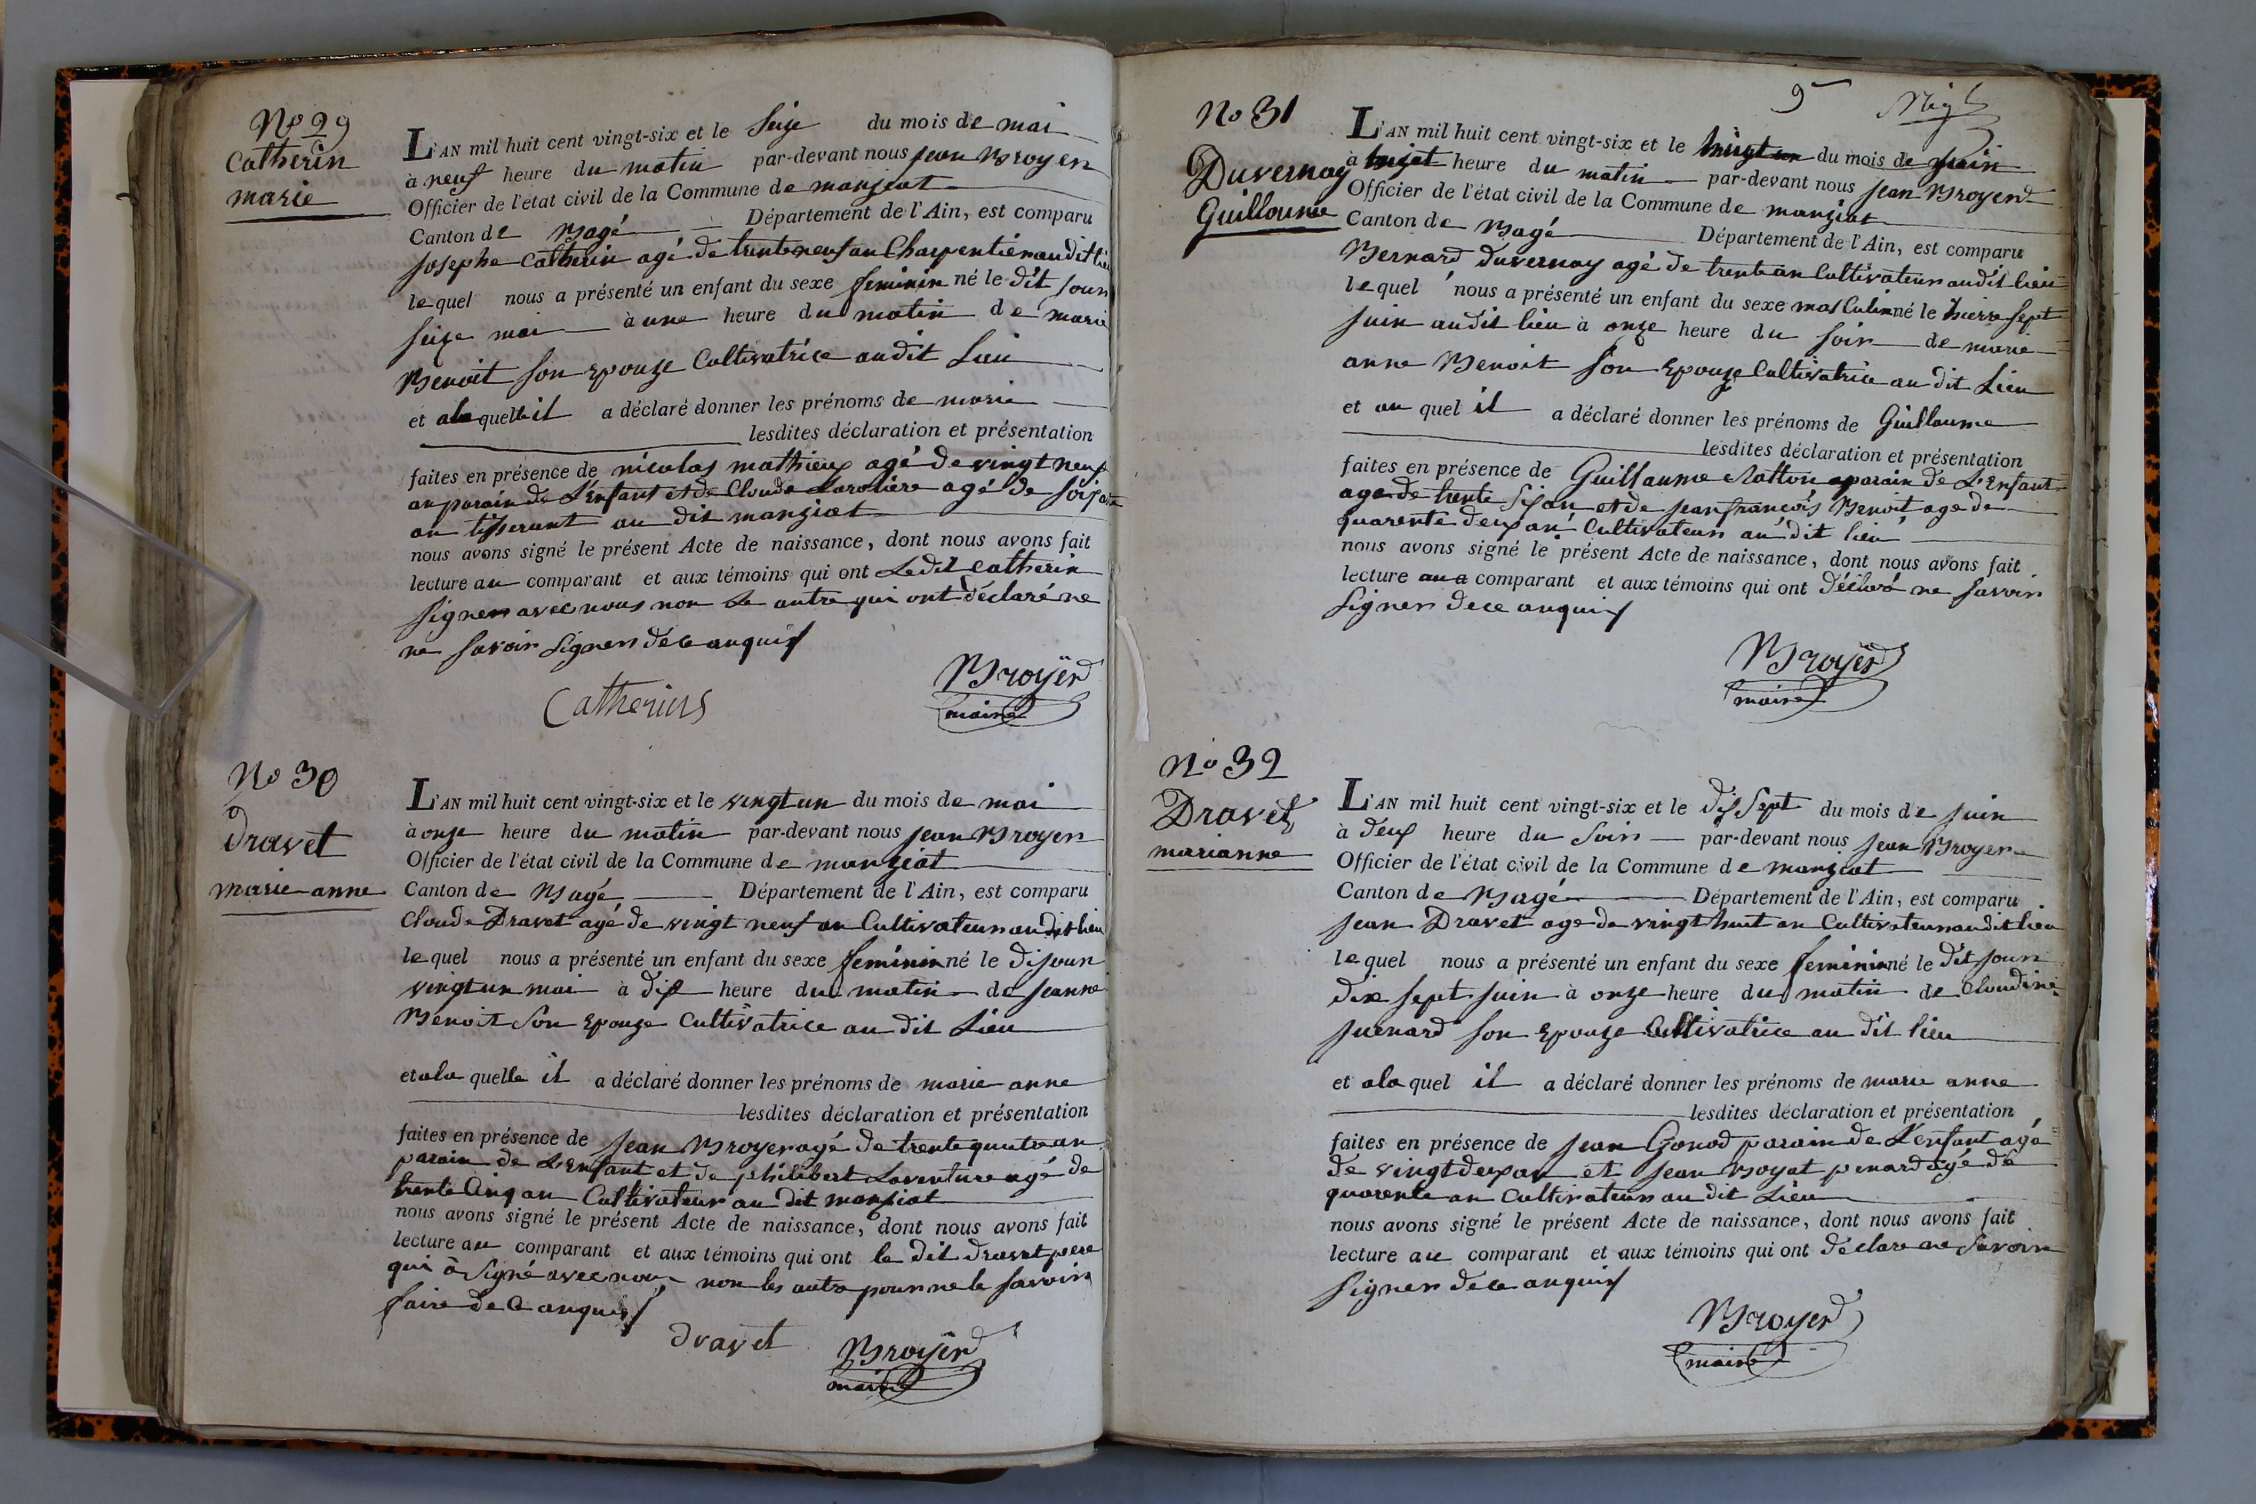 No 29
Catherin
marie
L'AN mil huit cent vingt-six et le Seize du mois de mai
à neuf heure du matin par-devant nous jean Broyer
Officier de l'état civil de la Commune de manziat
Canton de Bagé Département de l'Ain, est comparu
josephe Catherin agé de trente neuf an Charpentier audit lieu
lequel nous a présenté un enfant du sexe feminin né le dit jour
seize mai à une heure du matin de marie
Benoit son Epouze Cultivatrice audit Lieu
et ala quelle il a déclaré donner les prénoms de marie
lesdites déclaration et présentation
faites en présence de nicolas mathieux agé de vingt neuf
an parain de L'enfant et de Claude agé de
an tisserant au dit manziat
nous avons signé le présent Acte de naissance, dont nous avons fait
lecture au comparant et aux témoins qui ont Ledit Catherin
signer avec nous non Le autre qui ont déclaré ne
ne savoir signer de ce anquis
Catherins
Broyer
maire
No 30
Dravet
marie anne
L'AN mil huit cent vingt-six et le vingt un du mois de mai
à onze heure du matin par-devant nous jean Broyer
Officier de l'état civil de la Commune de manziat
Canton de Bagé Département de l'Ain, est comparu
Claude Dravet agé de vingt neuf an Cultivateur audit lieu
lequel nous a présenté un enfant du sexe feminin né le dijour
vingt un mai à dix heure du matin de jeanne
Benoit son Epouze Cultivatrice au dit Lieu
et ala quelle il a déclaré donner les prénoms de marie anne
lesdites déclaration et présentation
faites en présence de jean Broyer agé de trente quatre an
parain de L'enfant et de philibert Laventure agé de
trente Cinq an Cultivateur au dit manziat
nous avons signé le présent Acte de naissance, dont nous avons fait
lecture au comparant et aux témoins qui ont le dit dravet pere
qui à signé avec nous non les autre pour ne le savoir
faire de ce anquis
dravet
Broyer
maire
9
No 31
Duvernay
Guillaume
L'AN mil huit cent vingt-six et le du mois de juin
à heure du matin par-devant nous jean Broyer
Officier de l'état civil de la Commune de manziat
Canton de Bagé Département de l'Ain, est comparu
Bernard Duvernay agé de trente an Cultivateur audit lieu
lequel nous a présenté un enfant du sexe masculin né le hierre sept
juin audit lieu à onze heure du soir de marie
anne Benoit son Epouze Cultivatrice au dit Lieu
et au quel il a déclaré donner les prénoms de Guillaume
lesdites déclaration et présentation
faites en présence de Guillaume parain de L'Enfant
age de trente six an et de jean françois Benoit age de
quarente deux an Cultivateur au dit lieu
nous avons signé le présent Acte de naissance, dont nous avons fait
lecture au comparant et aux témoins qui ont déclaré ne savoir
signer de ce anquis
Broyer
maire
No 32
Dravet
marianne
L'AN mil huit cent vingt-six et le dix sept du mois de juin
à deux heure du soir par-devant nous jean Broyer
Officier de l'état civil de la Commune de manziat
Canton de Bagé Département de l'Ain, est comparu
jean Dravet age de vingt huit an Cultivateur audit lieu
lequel nous a présenté un enfant du sexe feminin né le dit jour
dix sept juin à onze heure du matin de Claudine
juenard son Epouze Cultivatrice au dit lieu
et ala quel il a déclaré donner les prénoms de marie anne
lesdites déclaration et présentation
faites en présence de jean Gonod parain de L'enfant agé
de vingt deux an et jean Boyat penard agé de
quarente an Cultivateur au dit Lieu
nous avons signé le présent Acte de naissance, dont nous avons fait
lecture au comparant et aux témoins qui ont déclare ne savoir
signer de ce anquis
Broyer
maire